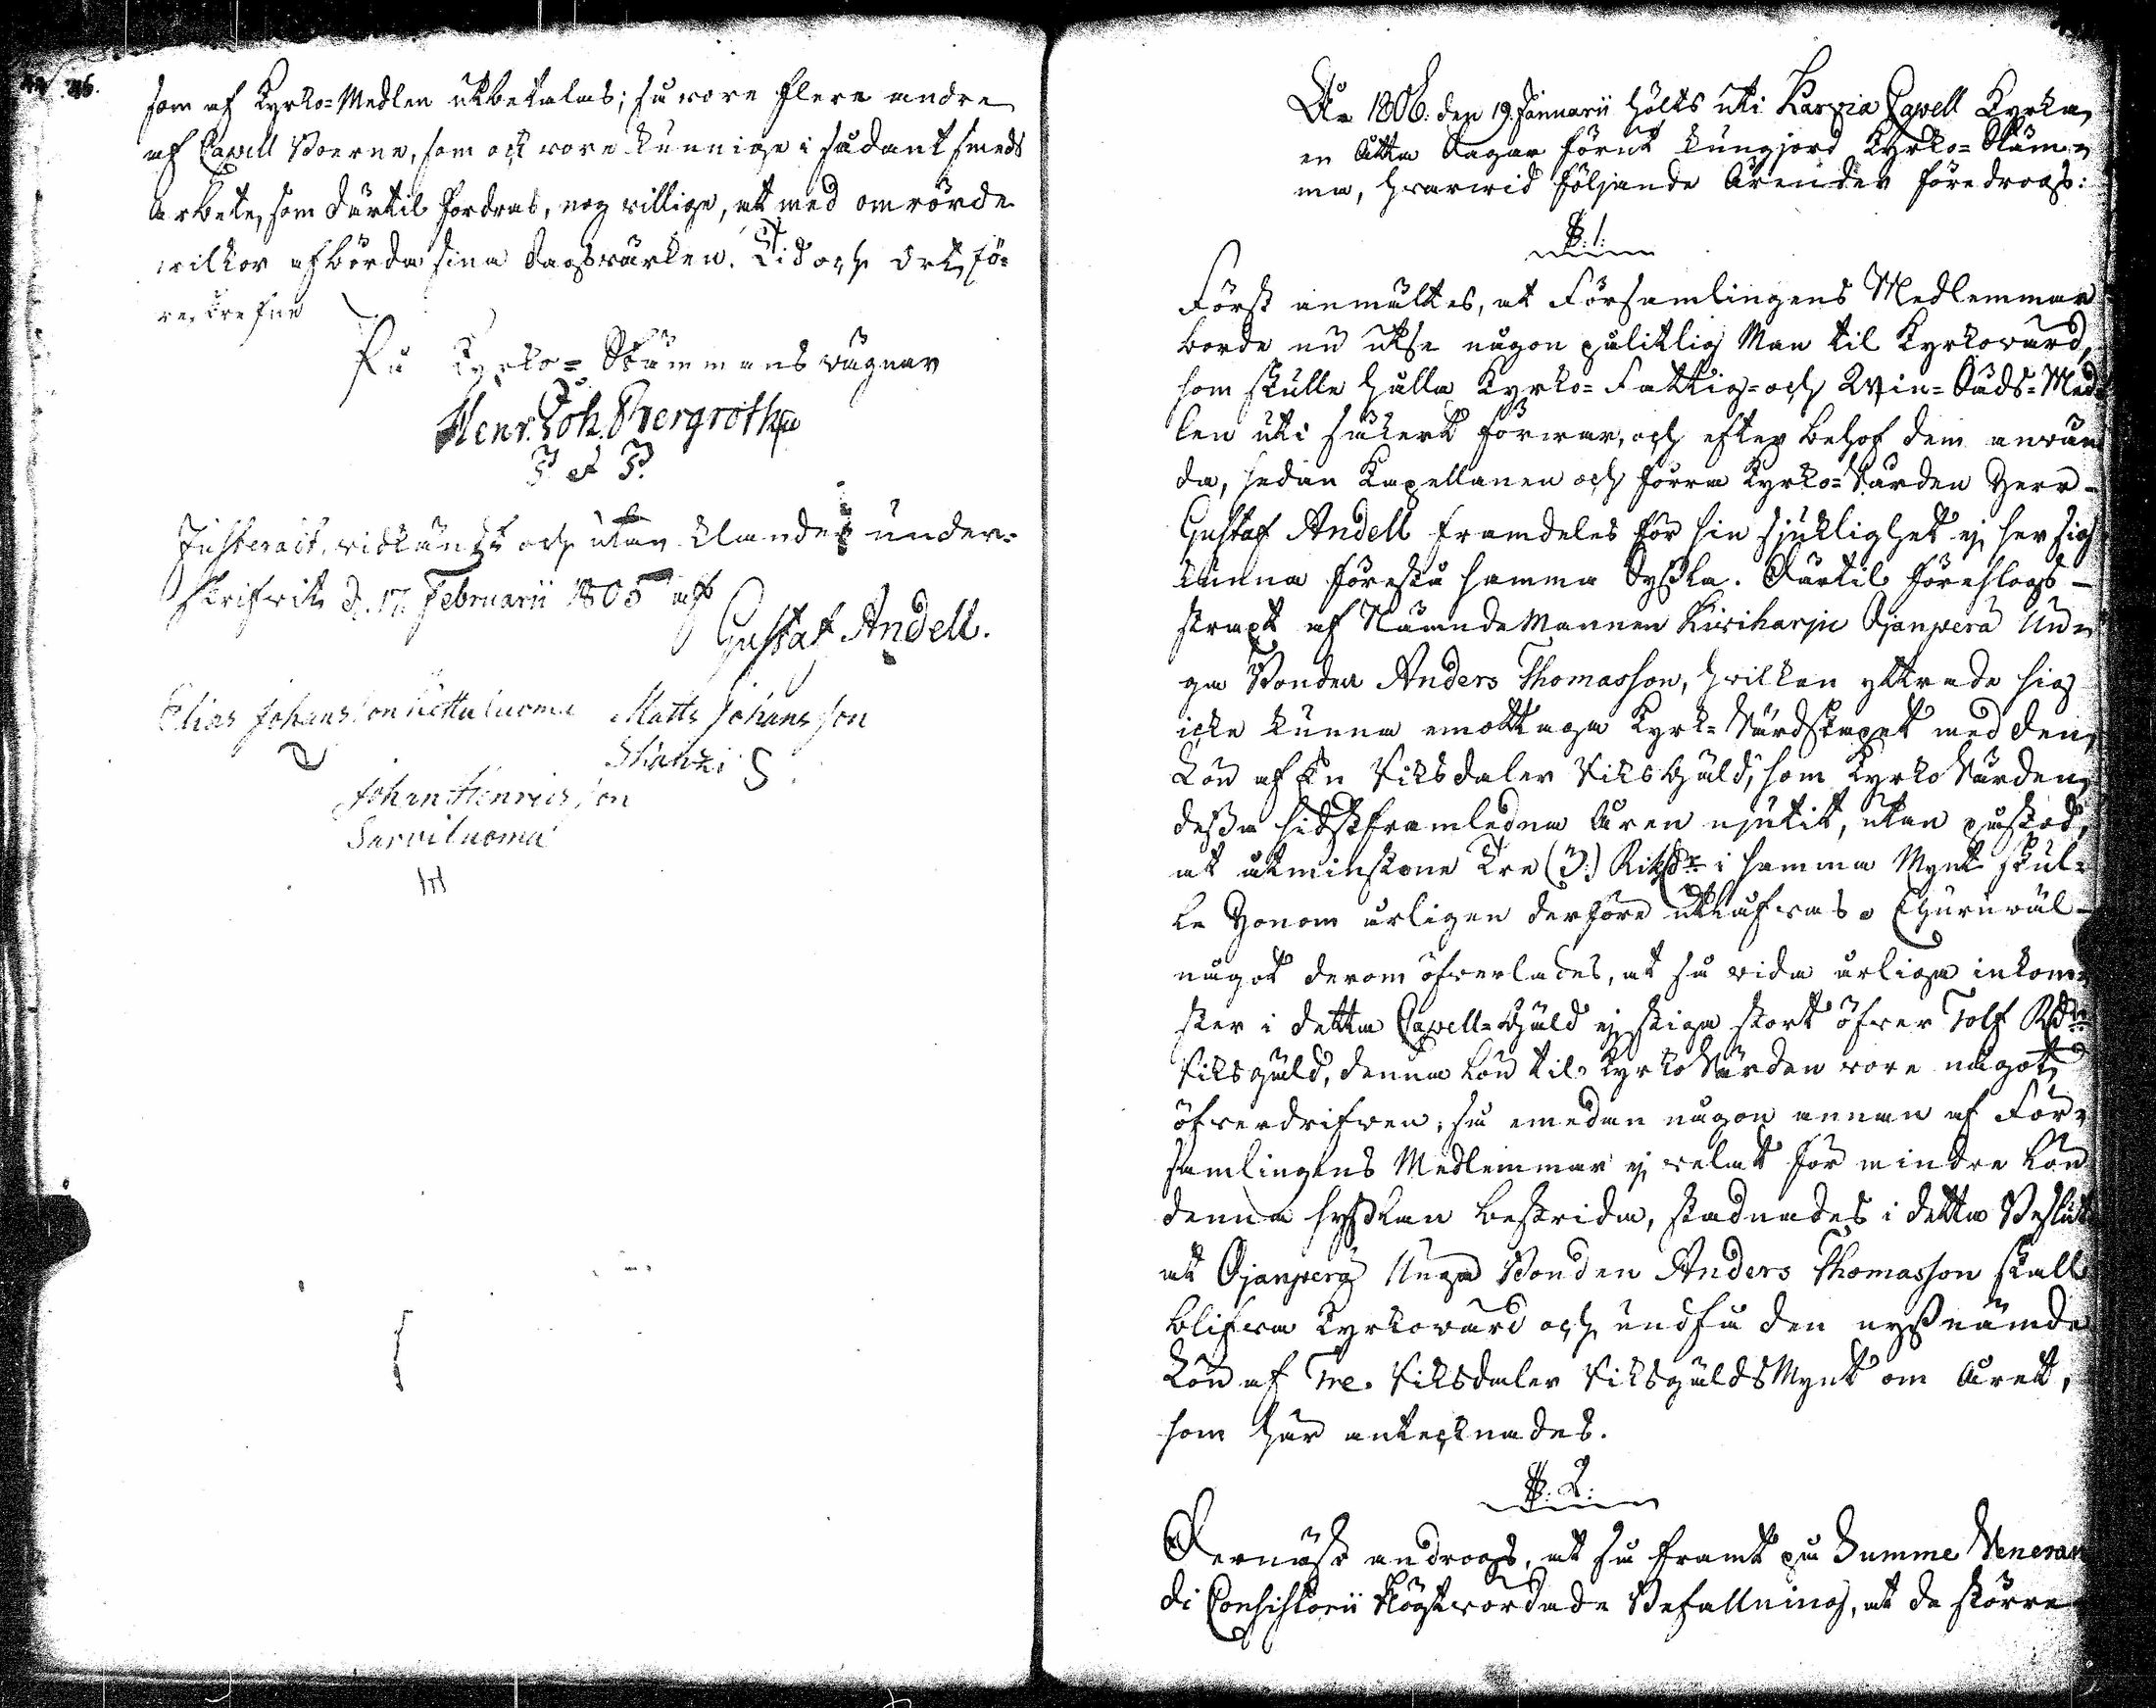 som af Kyrko-Medlen utbetalas; så vore flere andre
af Capell Boerne, som ock vore kunnige i sådant smeds
Arbete, som därtil fordras, nog villige, at med omrörde
wilkor afbörda sina dagsvärken. Tid och Ort, fö-
reskrefne
På Kyrko-Stämmans vägnar
Henr. Joh. Bergroth
P et P.
Justerait, vidkändt och utan klander under-
skrifvit, d. 17. Februarii 1805 af
Gustaf Andell.
Elias Johansson Kettuluoma Matts Johansson
Skantzi S.
Johan Henricsson
Sarviluoma
År 1806. den 19. Januarii hölts uti Karvia Capell Kyrka,
en Åtta Dagar förut kungjord Kyrko-Stäm-
ma, hvarvid följande Ärender föredrogs:
§. 1.
Först anmältes, at Församlingens Medlemmar
borde nu utse någon pålitlig Man til Kyrkovärd,
som skulle hålla Kyrko- Fattig- och Qvin-Båds-Med-
len uti säkert förvar, och efter behof dem använ-
da, sedan Kapellanen och förra Kyrko-Värden Herr
Gustaf Andell framdeles för sin sjuklighet ej ser sig
kunna förestå samma Syssla. Därtil föreslogs
straxt af Nämndemannen Kiviharju Ojanperä Un-
ga Bonden Anders Thomasson, hvilken yttrade sig
icke kunna emottaga Kyrk-Värdskapet med den
Lön af En Riksdaler Riksgäld, som Kyrko Värden
dessa sidstframledna Åren njutit, utan påstod,
at utminstone Tre (3.) Riksdr. i samma Mynt skul-
le Honom årligen derföre utlåfvas. Ehuruväl
något derom öfverlades, at så vida årliga inkom-
ster i detta Capell-Gäld ej stiga stort öfver Tolf Rdr.
Riksgäld, denna Lön til Kyrko Värden vore något
öfverdrifven; så emedan någon annan af För-
samlingens Medlemmar ej velat för mindre Lön
denna sysslan bestrida, stadnades i detta Beslut
at Ojanperä Unga Bonden Anders Thomasson skall
blifva Kyrkovärd och undfå den nyssnämde
Lön af Tre. Riksdaler Riksgälds Mynt om Året,
som här antecknades.
§. 2.
Dernäst androgs, at så framt på Summe Veneran
di Consistorii Högtvördade Befallning, at de större